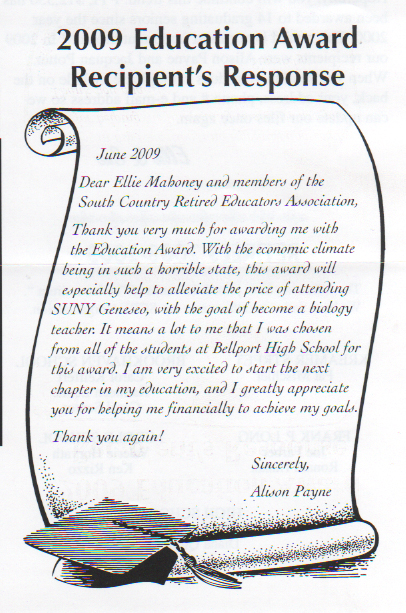 2009 Education Award
Recipient's Response
June 2009
Dear Ellie Mahoney and members of the
South Country Retired Educators Association,
Thank you very much for awarding me with
the Education Award. With the economic climate
being in such a horrible state, this award will
especially help to alleviate the price of attending
SUNY Geneseo, with the goal of become a biology
teacher. It means a lot to me that I was chosen
from all of the students at Bellport High School for
this award. I am very excited to start the next
chapter in my education, and I greatly appreciate
you for helping me financially to achieve my goals.
Thank you again!
Sincerely,
Alison Payne